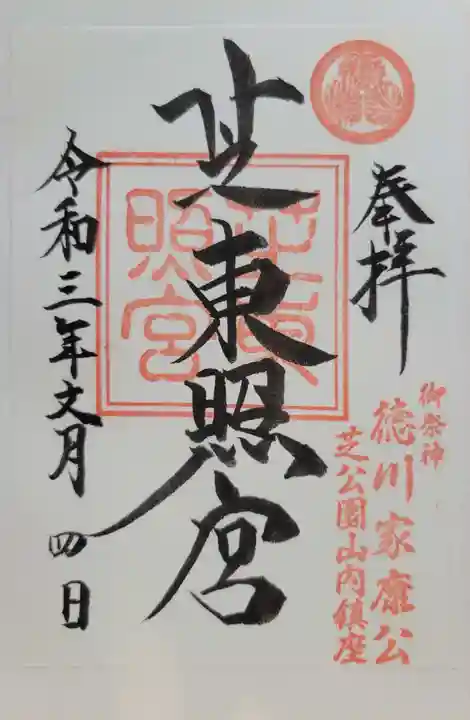 奉拝
御祭神
徳川家康公
芝公園山内鎮座
芝東照宮
芝東
照宮
令和三年文月四日